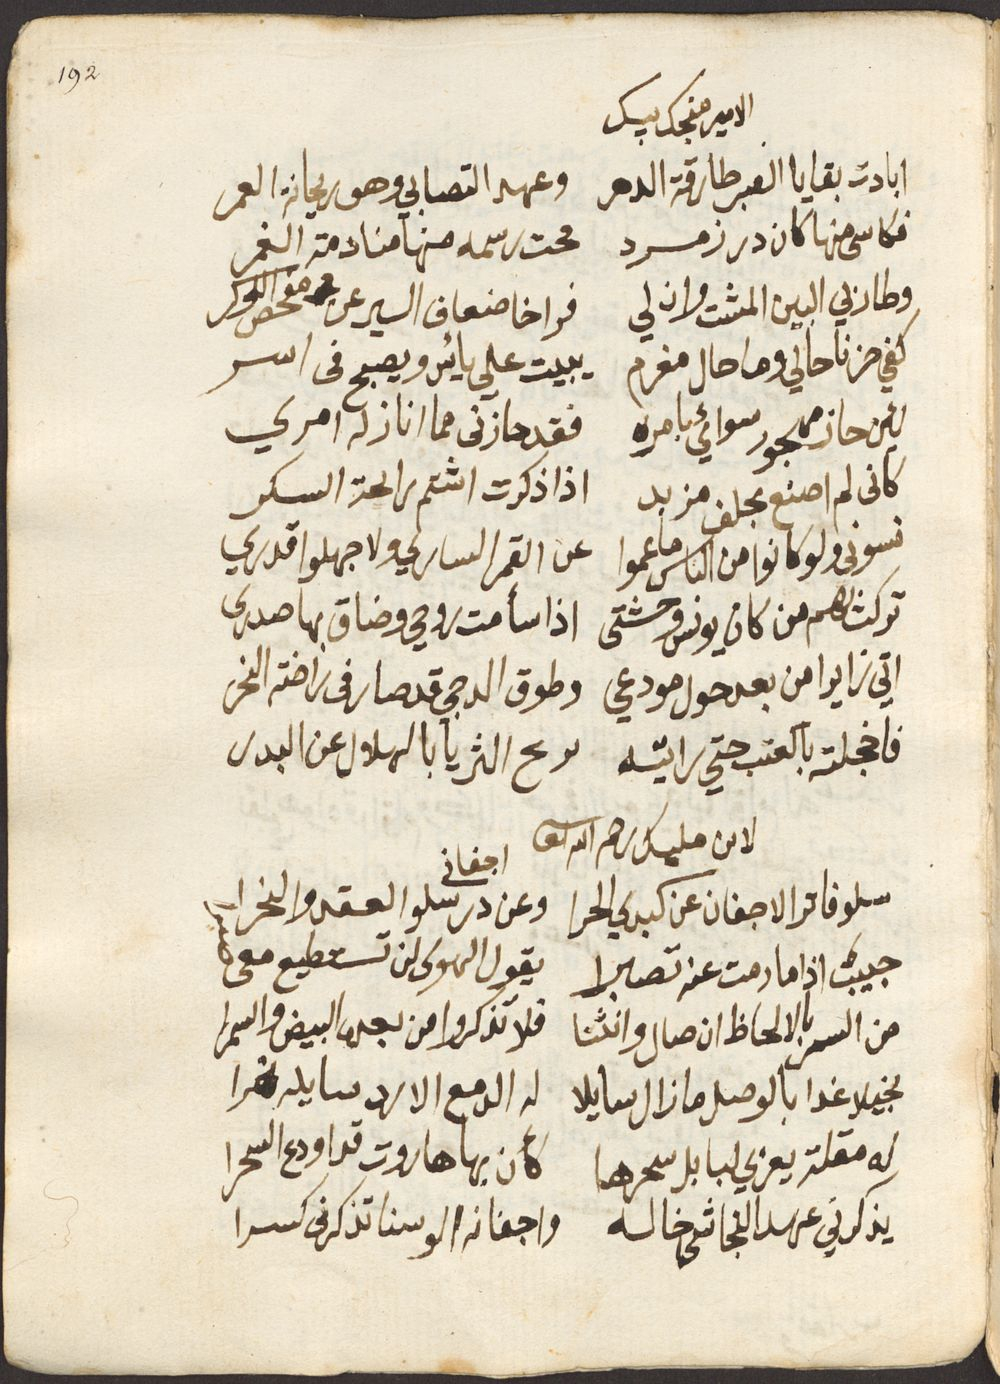 192
الامير منجك بيك
ابادت بقايا الصبر طارقة الدهر وعهد التصابي وهو ريحانة العمر
فكاسي منها كان در زمرد محت رسمه منها منادمة الغمر
وطار بي البين المشت وان لي فراخا ضعاف السير عن مفحص الوكر
كفي حزنا حالي وما حال مغرم يبيت علي يأس ويصبح في اسر
لئن حاز ممجور سوائي بامره فقد حازني مما انازله امري
كاني لم اصنع بجلق مزبد اذا ذكرت اشتم رايحة السكر
نسوني ولو كانوا من الناس ما عموا عن القمر الساري ولا جهلوا قدري
تركت لهم من كان يونس وحشتي اذا سأمت روحي وضاق بها صدري
اتي زايرا من بعد حول مودعي وطوق الدجي قد صار في راحته النحر
فاخجلته بالعتب حتي رايته الثريا بالهلال عن البدر
لابن مليك رحمه الله تعالى
اجفاني
سلو فاتر الاجفان عن كبدي الحرا وعن در سلوا العقد والنحرا
حبيب اذا ما رمت عنه تصبرا يقول الهوى لن تستطيع معي صبرا
من السمر بالالحاظ ان صال وانثنا فلا تذكروا من بعده البيض والسمرا
بخيلا غدا بالوصل ما زال سايلا له الدمع الا رد سايله نهرا
له مقلة يعزي لبابل سحرها كأن بها هاروت قد اودع السحرا
يذكرني عهد النجاشي خاله واجفانه الوسنا تذكرني كسرا